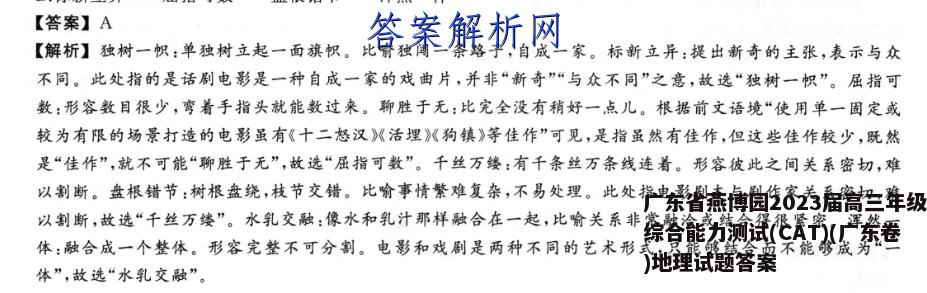 【答案】A
答案解析网
【解析】独树一帜:单独树立起一面旗帜。比喻独闯一条路子,自成一家。标新立异:提出新奇的主张,表示与众
不同。此处指的是话剧电影是一种自成一家的戏曲片,并非“新奇”“与众不同”之意,故选“独树一帜”。屈指可
数:形容数目很少,弯着手指头就能数过来。聊胜于无:比完全没有稍好一点儿。根据前文语境“使用单一固定或
较为有限的场景打造的电影虽有《十二怒汉》《活埋》《狗镇》等佳作”可见,是指虽然有佳作,但这些佳作较少,既然
是“佳作”,就不可能“聊胜于无”,故选“屈指可数”。千丝万缕:有千条丝万条线连着。形容彼此之间关系密切,难
以割断。盘根错节:树根盘绕,枝节交错。比喻事情繁难复杂,不易处理。此处指电影剧本与剧作家关系密切,难
以割断,故选“千丝万缕”。水乳交融:像水和乳汁那样融合在一起,比喻关系非常融洽或结合得很紧密。浑然一
体:融合成一个整体。形容完整不可分割。电影和戏剧是两种不同的艺术形式,只能够结合而不能够成为“一
体”,故选“水乳交融”。
广东省燕博园2023届高三年级
综合能力测试(CAT)(广东卷
)地理试题答案